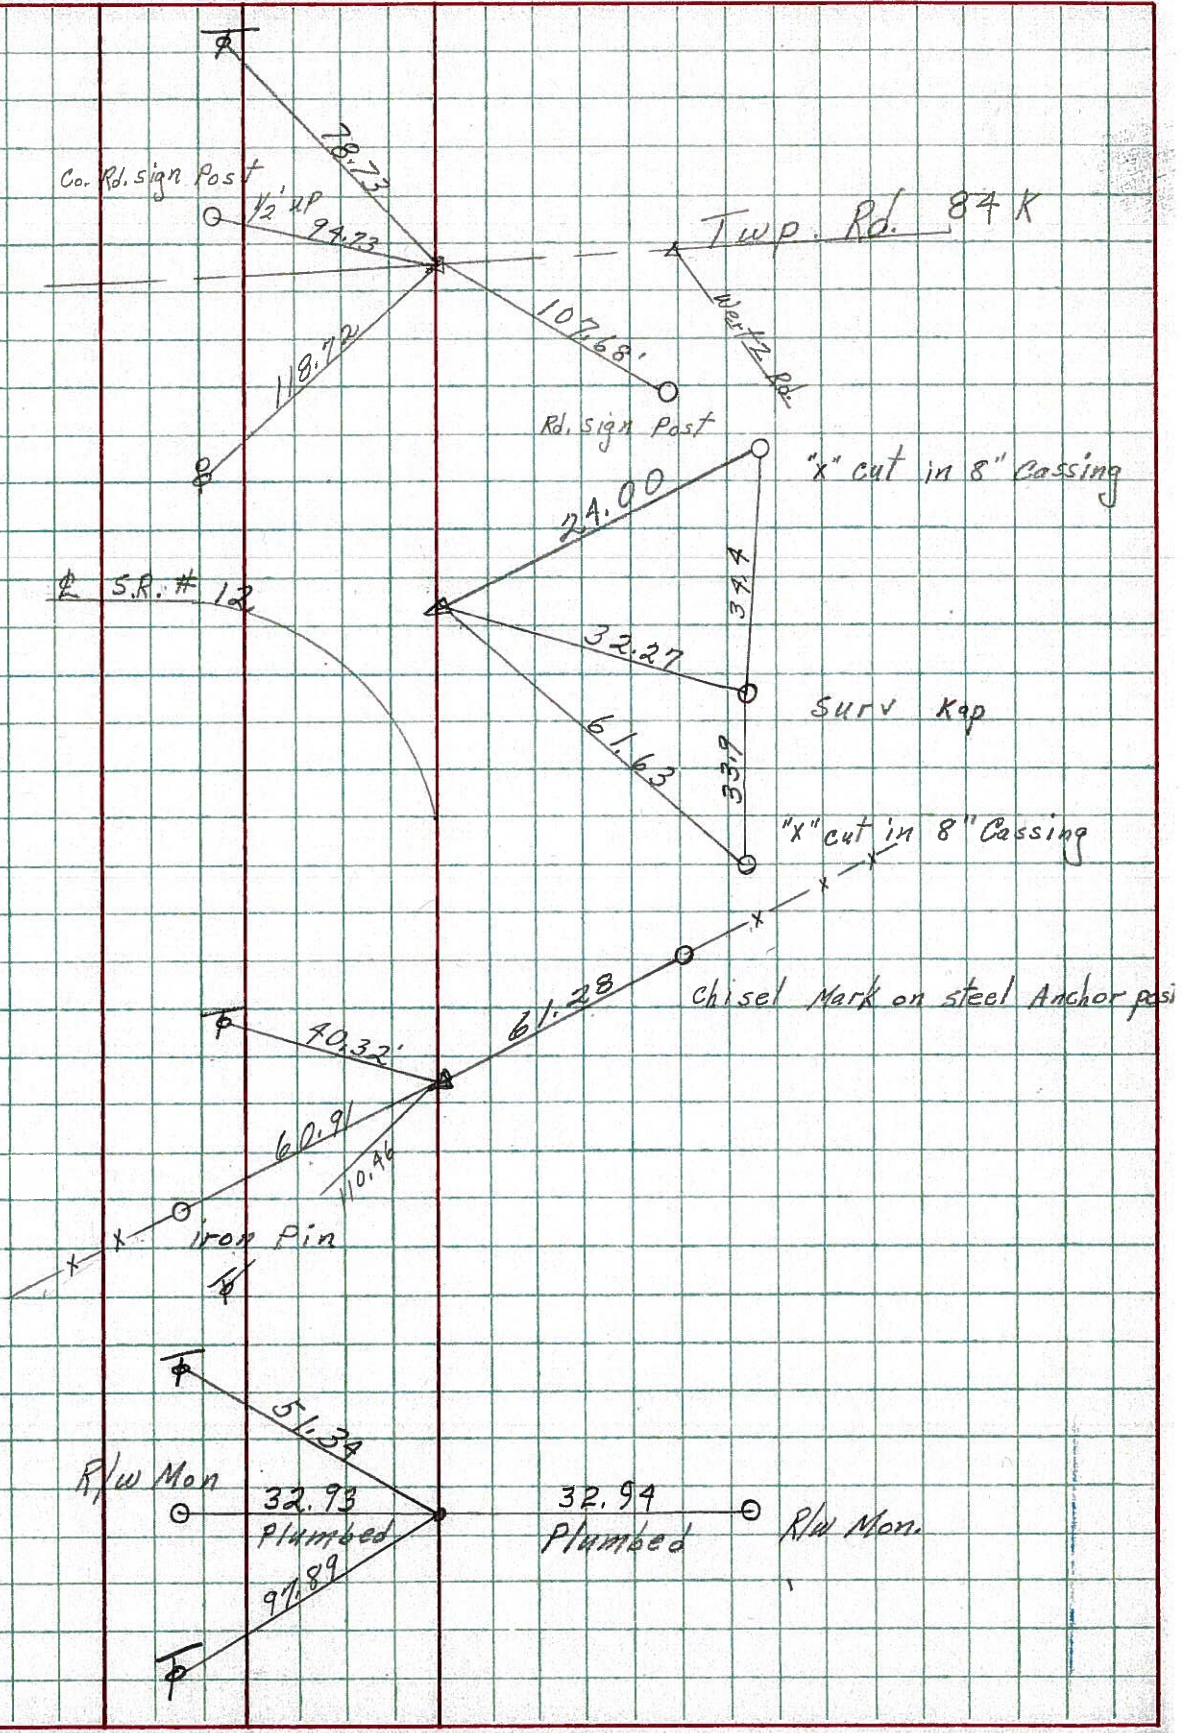 78.73
Co. Rd. sign Post
1/2' up
94.73
Twp. Rd. 84 K
Wertz Rd.
107.68'
118.72
Rd. sign Post
"x" cut in 8" Cassing
24.00
34.4
℄ S.R. # 12
32.27
Surv Kap
61.63
33.9
"x" cut in 8" Cassing
61.28
Chisel Mark on steel Anchor pos
40.32'
60.91
110.46
iron Pin
51.34
R/w Mon
32.93
Plumbed
32.94
Plumbed
R/w Mon.
97.89